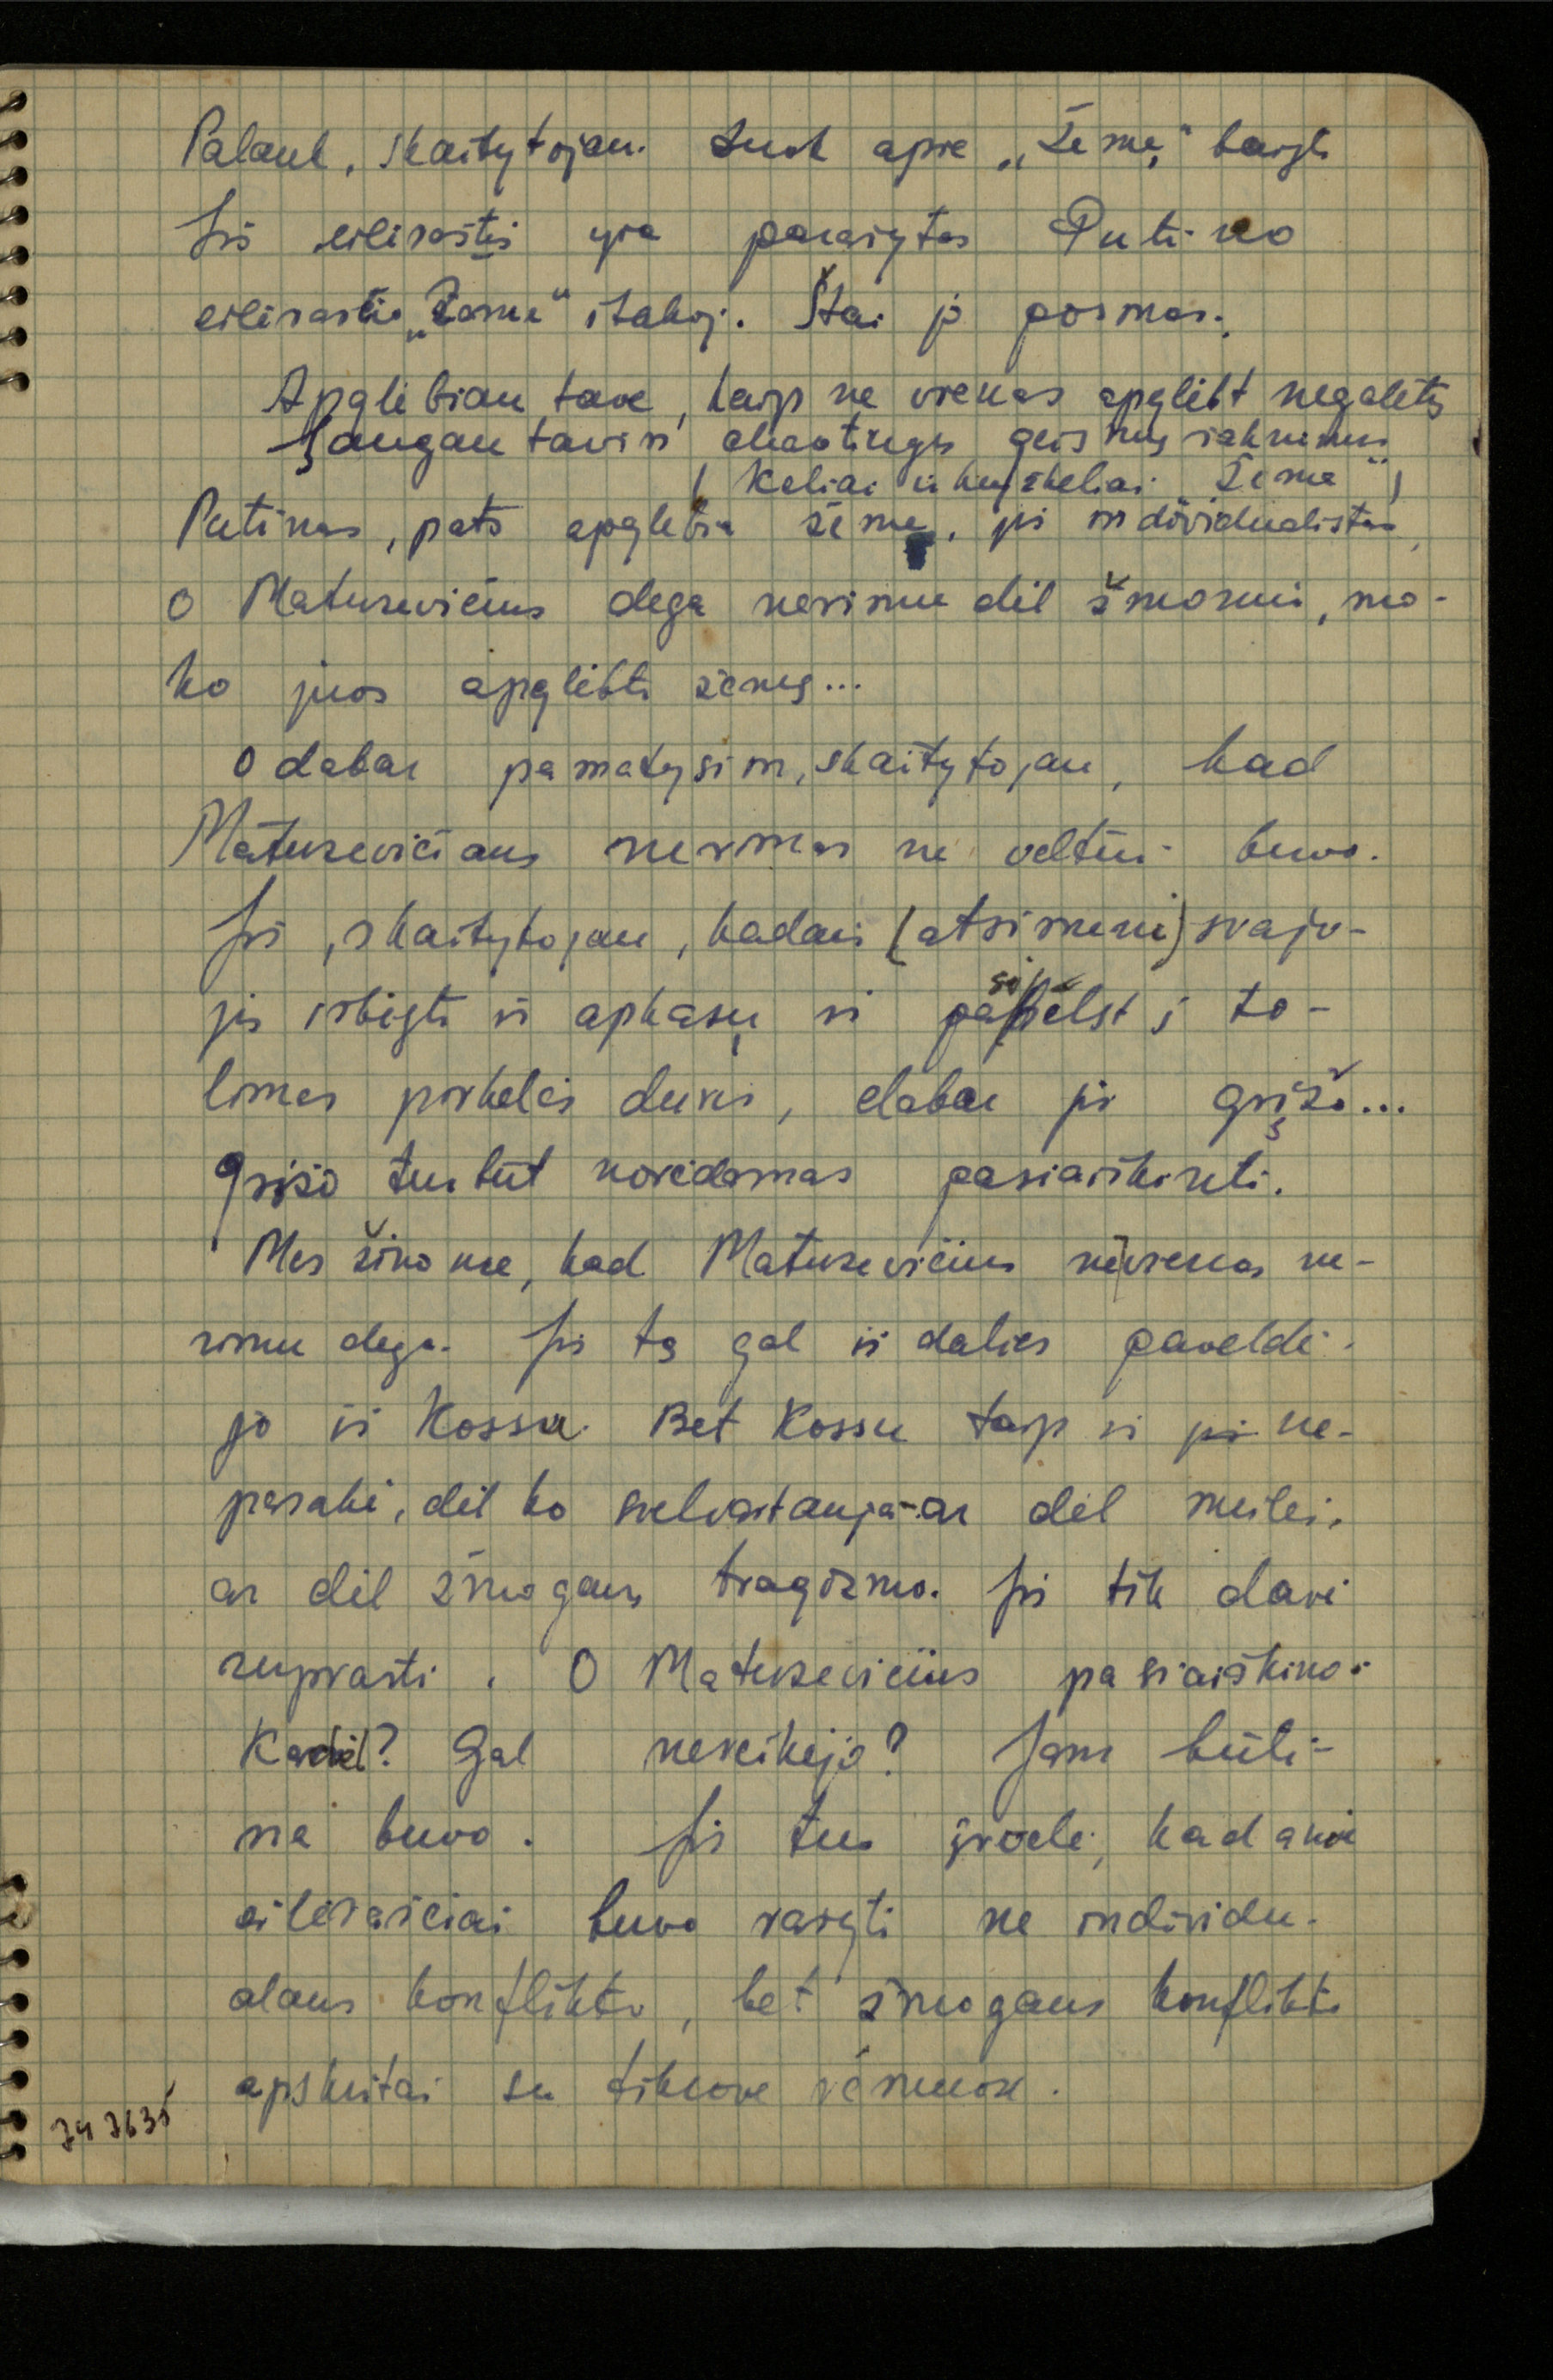 Palauk, skaitytojau. apie „Žemę“ baigti
Jis eilėraštis yra parašytas Putino
eilėraščio „Žemė“ įtakoj. Štai jo posmas:
Apglėbiau tave, kaip ne vienas apglėbt negalėtų
Įaugau tavin chaotingų geismų šaknimis
(Keliai ir kryžkeliai Žemė“)
Putinas, pats apglėbia žemę, jis individualistas,
o Matuzevičius dega nerimu dėl žmonių, mo-
ko juos apglėbti žemę...
O dabar pamatysim, skaitytojau, kad
Matuzevičiaus nerimas ne veltui buvo.
Jis, skaitytojau, kadais (atsimeni) svajo-
jis išbėgti iš apkasų ir pasibelst į to-
limas pirkelės duris, dabar jis grįžo...
Grįžo turbūt norėdamas pasiaiškinti.
Mes žinome, kad Matuzevičius ne vienas ne-
rimu dega. Jis tą gal iš dalies paveldė-
jo iš Kossu. Bet Kossu taip ir jis ne-
pasakė, dėl ko sielvartauja - ar dėl meilės,
ar dėl žmogaus tragizmo. Jis tik davė
suprasti. O Matuzevičius pasiaiškino.
Kodėl? Gal nereikėjo? Jam būti-
na buvo. Jis tuo įrodė, kad anie
eilėraščiai buvo rašyti ne individu-
alaus konflikto, bet žmogaus konflikto
apskritai su tikrove rėmuose.
747635